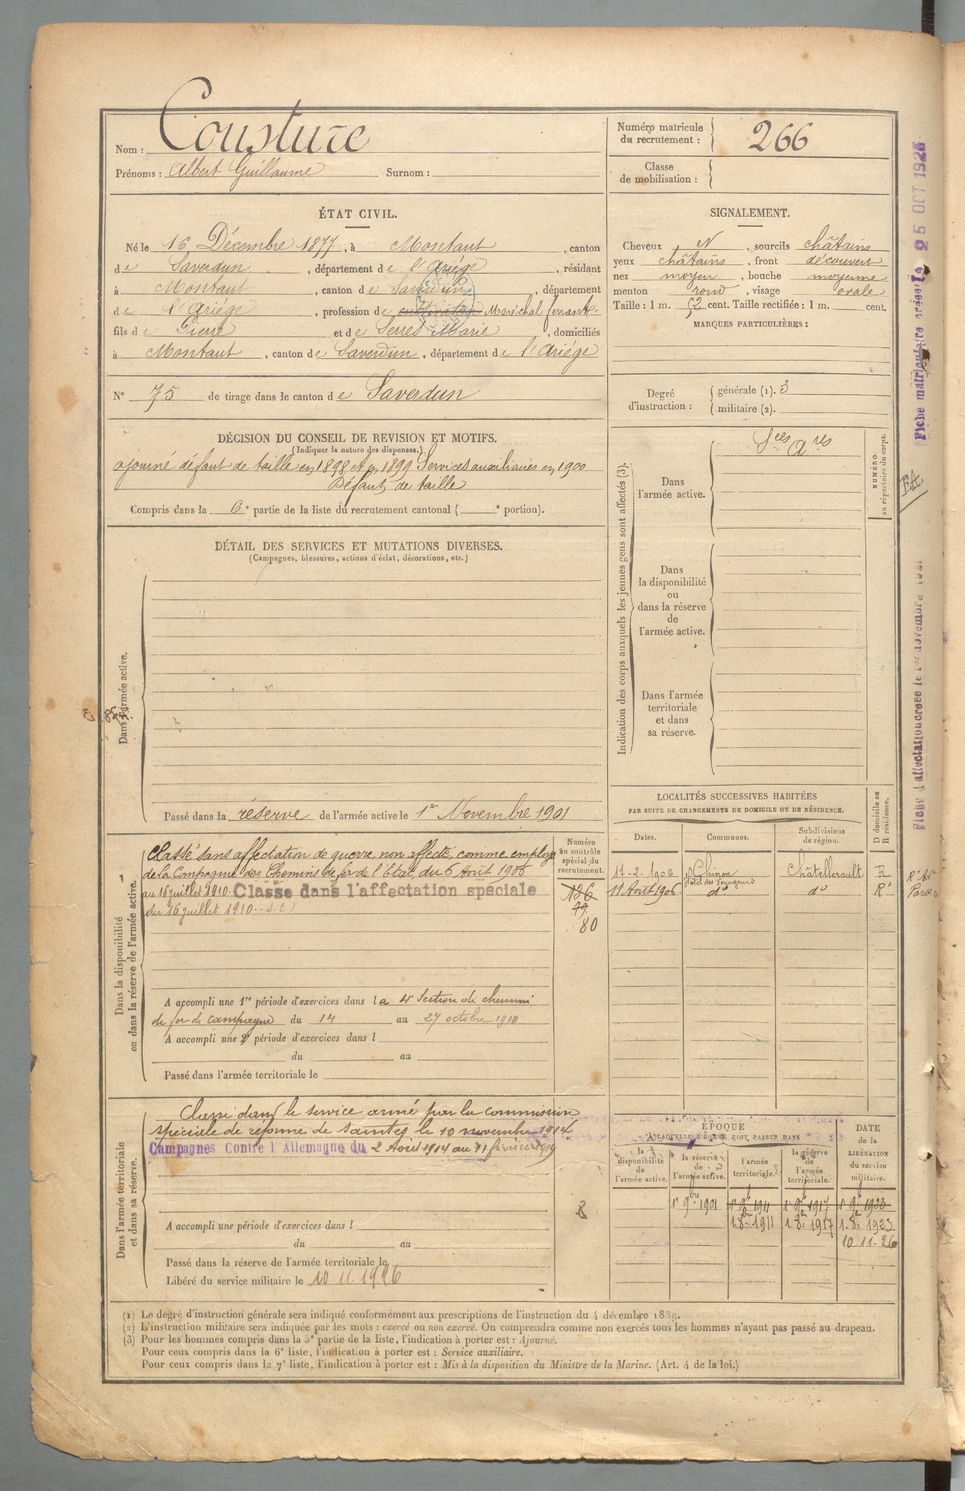 Nom : Cousture
Prénoms : Albert Guillaume Surnom :
Numéro matricule du recrutement : 266
Classe de mobilisation :
ÉTAT CIVIL.
Né le 16 Décembre 1877, à Montaut, canton
de Saverdun, département de l'Ariége, résidant
à Montaut, canton de Saverdun, département
de l'Ariége, profession de cultivateur Maréchal ferrant
fils de Pierre et de Serres Marie, domiciliés
à Montaut, canton de Saverdun, département de l'Ariége
N° 75 de tirage dans le canton de Saverdun
SIGNALEMENT.
Cheveux N, sourcils châtains
yeux châtains, front découvert
nez moyen, bouche moyenne
menton rond, visage ovale
Taille : 1 m. 52 cent. Taille rectifiée : 1 m. cent.
MARQUES PARTICULIÈRES :
Degré d'instruction : générale (1). 3
militaire (2).
DÉCISION DU CONSEIL DE REVISION ET MOTIFS.
(Indiquer la nature des dispenses.)
ajourné défaut de taille en 1898 et en 1899 Services auxiliaires en 1900
Défaut de taille
Compris dans la 6e partie de la liste du recrutement cantonal ( e portion).
DÉTAIL DES SERVICES ET MUTATIONS DIVERSES.
(Campagnes, blessures, actions d'éclat, décorations, etc.)
Dans l'armée active.
Passé dans la réserve de l'armée active le 1er Novembre 1901
Indication des corps auxquels les jeunes gens sont affectés (3).
Dans l'armée active.
Sces Ares
Dans la disponibilité ou dans la réserve de l'armée active.
Dans l'armée territoriale et dans sa réserve.
NUMÉRO au répertoire du corps.
Dans la disponibilité ou dans la réserve de l'armée active.
Classé sans affectation de guerre, non affecté, comme employé
de la Compagnie des Chemins de fer de l'Etat, du 6 Août 1906
au 16 juillet 1910. Classé dans l'affectation spéciale
du 16 juillet 1910
Numéro au contrôle spécial du recrutement.
80
A accompli une 1re période d'exercices dans la 4e Section de chemin
de fer de campagne du 14 au 27 octobre 1910
A accompli une 2e période d'exercices dans l
du au
Passé dans l'armée territoriale le
LOCALITÉS SUCCESSIVES HABITÉES
PAR SUITE DE CHANGEMENTS DE DOMICILE OU DE RÉSIDENCE.
Dates. Communes. Subdivisions de région. D domicile ou R résidence.
17-2-1906 Chinon Châtellerault R
Hôtel des Voyageurs
11 Août 1906 do do R
Dans l'armée territoriale et dans sa réserve.
Classé dans le service armé par la commission
spéciale de réforme de Saintes le 10 novembre 1914
Campagnes Contre l'Allemagne du 2 Août 1914 au 11 février 1919
A accompli une période d'exercices dans l
du au
Passé dans la réserve de l'armée territoriale le
Libéré du service militaire le 10.11.1926
ÉPOQUE
À LAQUELLE L'HOMME DOIT PASSER DANS
la disponibilité de l'armée active.
la réserve de l'armée active.
l'armée territoriale.
la réserve de l'armée territoriale.
DATE de la LIBÉRATION du service militaire.
1er 9bre 1901 1er 9bre 1911 1er 9bre 1917 1er 9bre 1923
1.8.1911 1.8.1917 1.8.1923
10.11.26
(1) Le degré d'instruction générale sera indiqué conformément aux prescriptions de l'instruction du 4 décembre 1889.
(2) L'instruction militaire sera indiquée par les mots : exercé ou non exercé. On comprendra comme non exercés tous les hommes n'ayant pas passé au drapeau.
(3) Pour les hommes compris dans la 5e partie de la liste, l'indication à porter est : Ajourné.
Pour ceux compris dans la 6e liste, l'indication à porter est : Service auxiliaire.
Pour ceux compris dans la 7e liste, l'indication à porter est : Mis à la disposition du Ministre de la Marine. (Art. 4 de la loi.)
Fiche matriculaire créée le 25 OCT 1926
Fiche d'affectation créée le 1er novembre